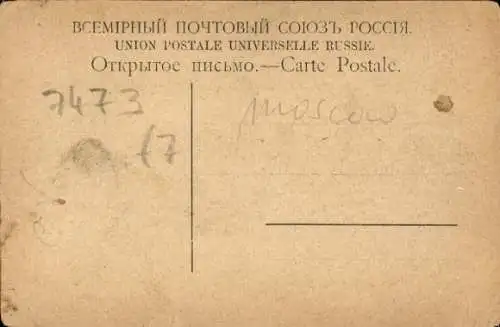 ВСЕМІРНЫЙ ПОЧТОВЫЙ СОЮЗЪ РОССІЯ.
UNION POSTALE UNIVERSELLE RUSSIE.
Открытое письмо.—Carte Postale.
7473
Moscow